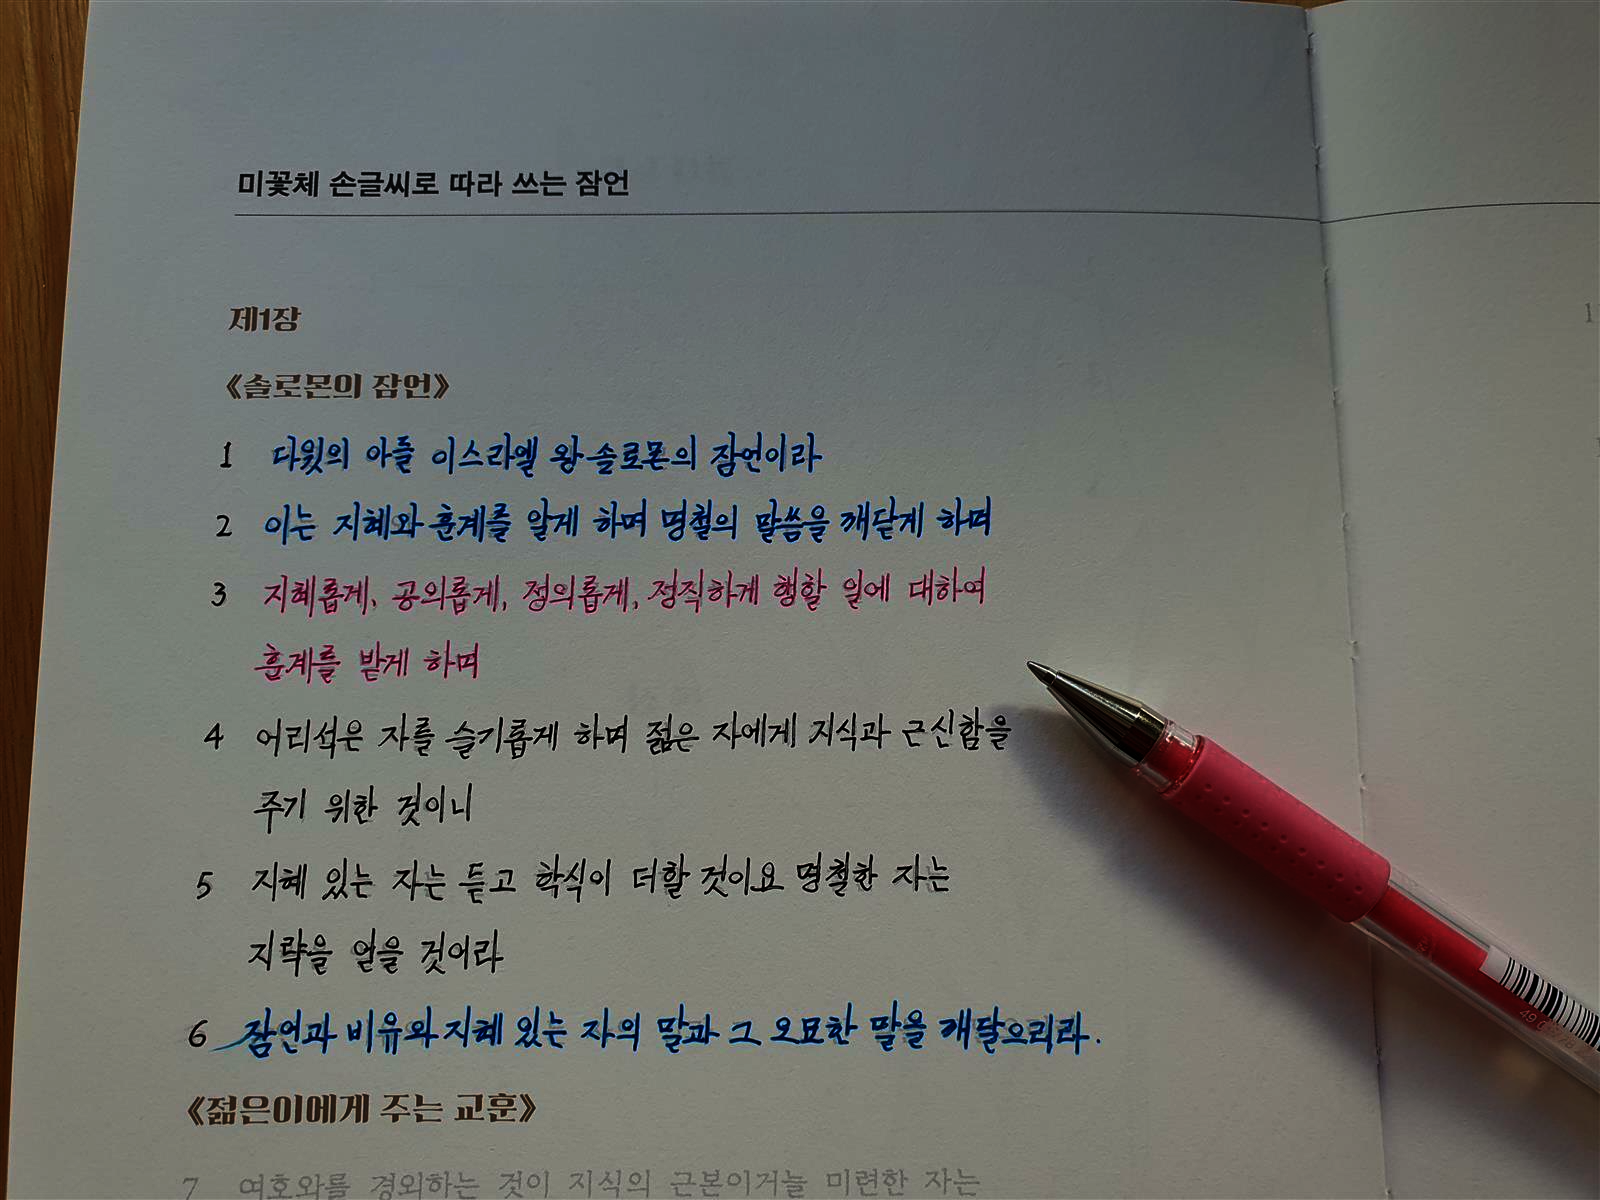 미꽃체 손글씨로 따라 쓰는 잠언
제1장
《솔로몬의 잠언》
1 다윗의 아들 이스라엘 왕 솔로몬의 잠언이라
2 이는 지혜와 훈계를 알게 하며 명철의 말씀을 깨닫게 하며
3 지혜롭게, 공의롭게, 정의롭게, 정직하게 행할 일에 대하여
훈계를 받게 하며
4 어리석은 자를 슬기롭게 하며 젊은 자에게 지식과 근신함을
주기 위한 것이니
5 지혜 있는 자는 듣고 학식이 더할 것이요 명철한 자는
지략을 얻을 것이라
6 잠언과 비유와 지혜 있는 자의 말과 그 오묘한 말을 깨달으리라.
《젊은이에게 주는 교훈》
7 여호와를 경외하는 것이 지식의 근본이거늘 미련한 자는